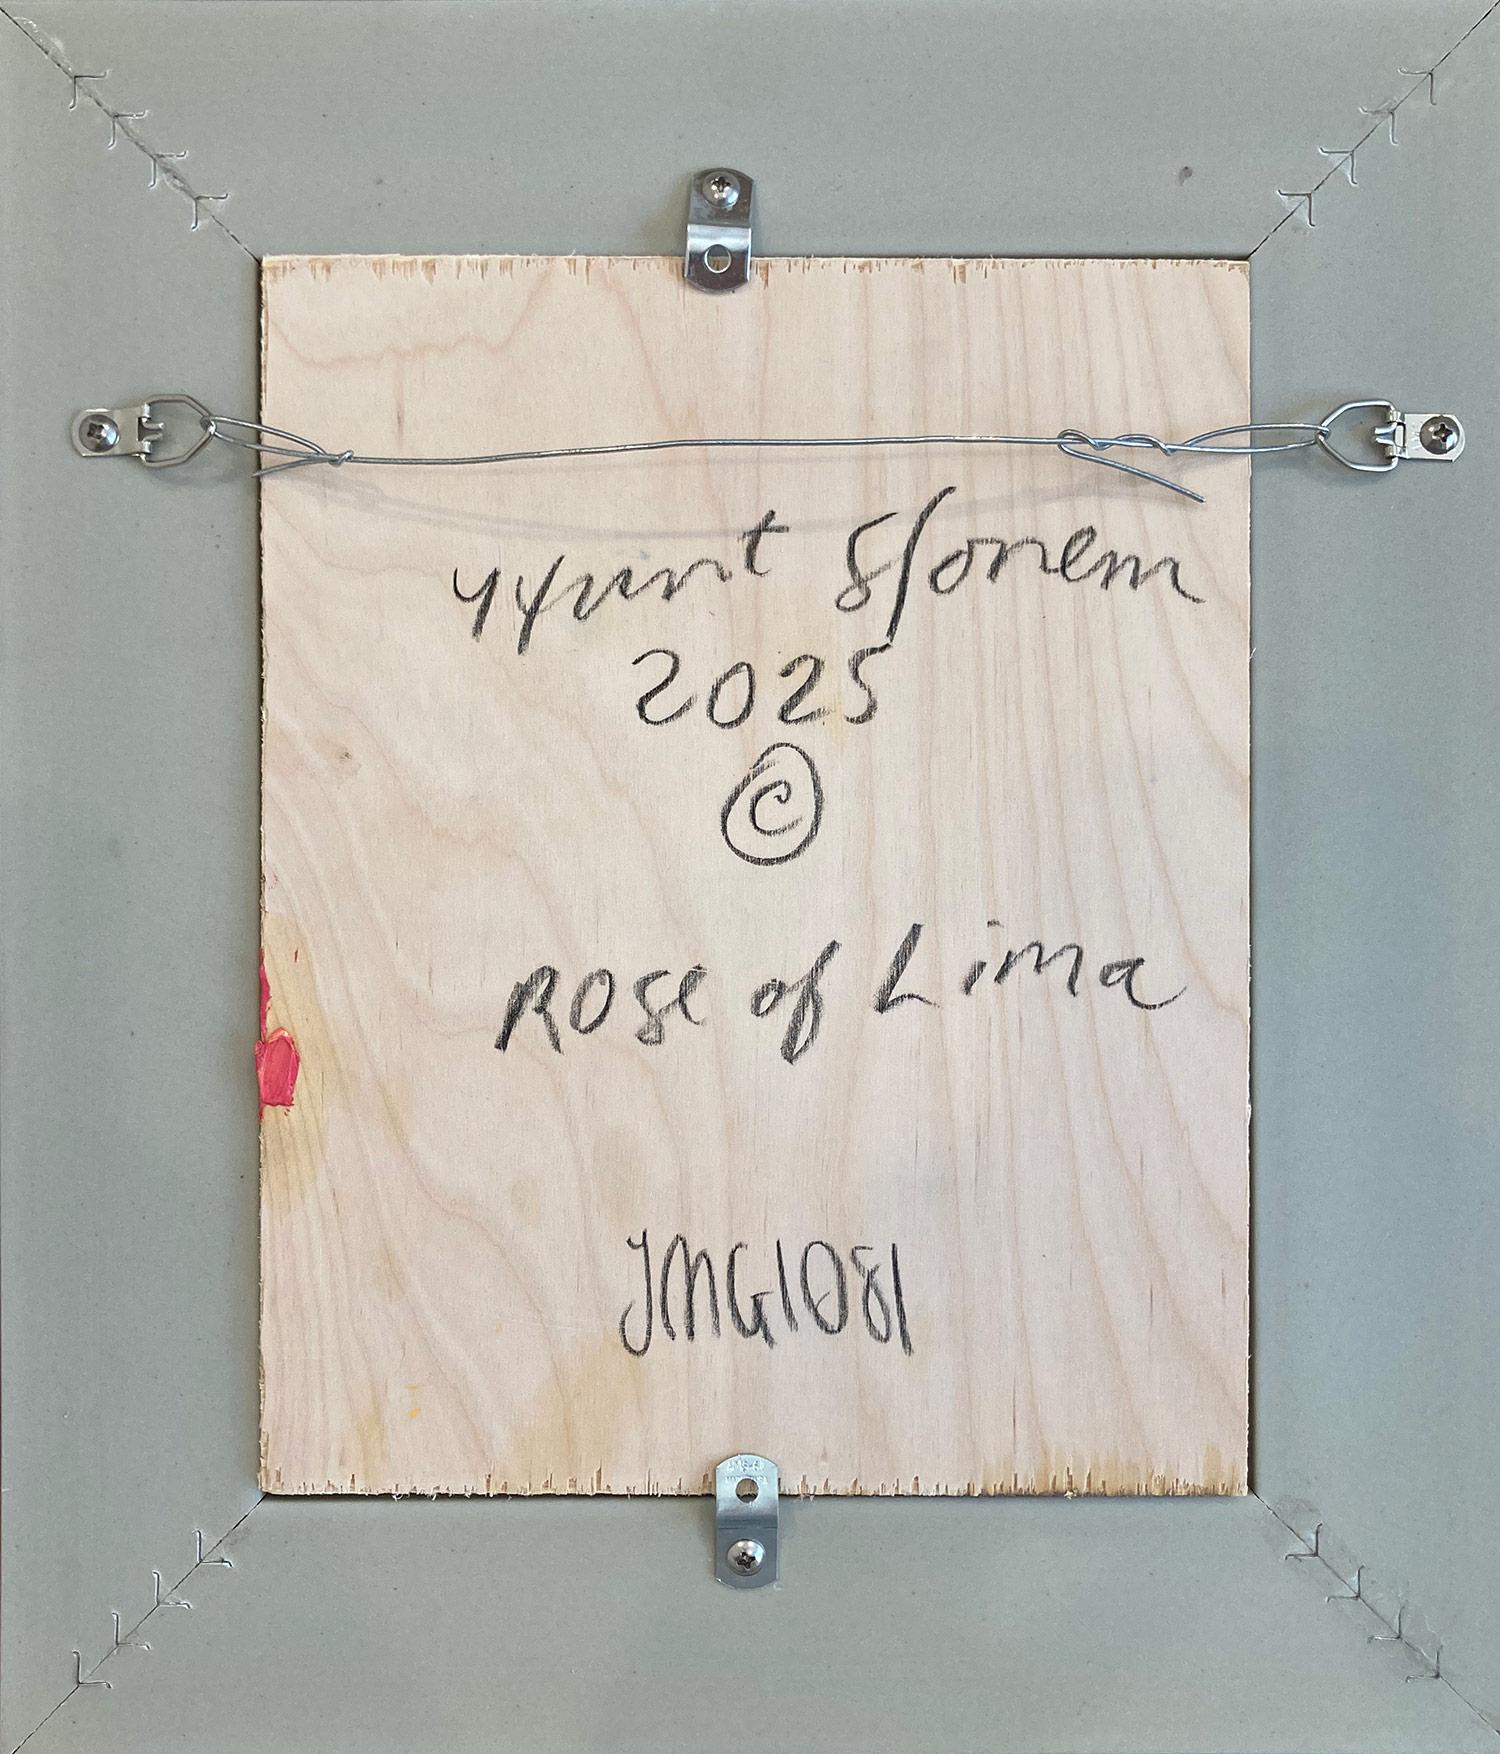 Hunt Slonem
2025
©
Rose of Lima
JMG1081